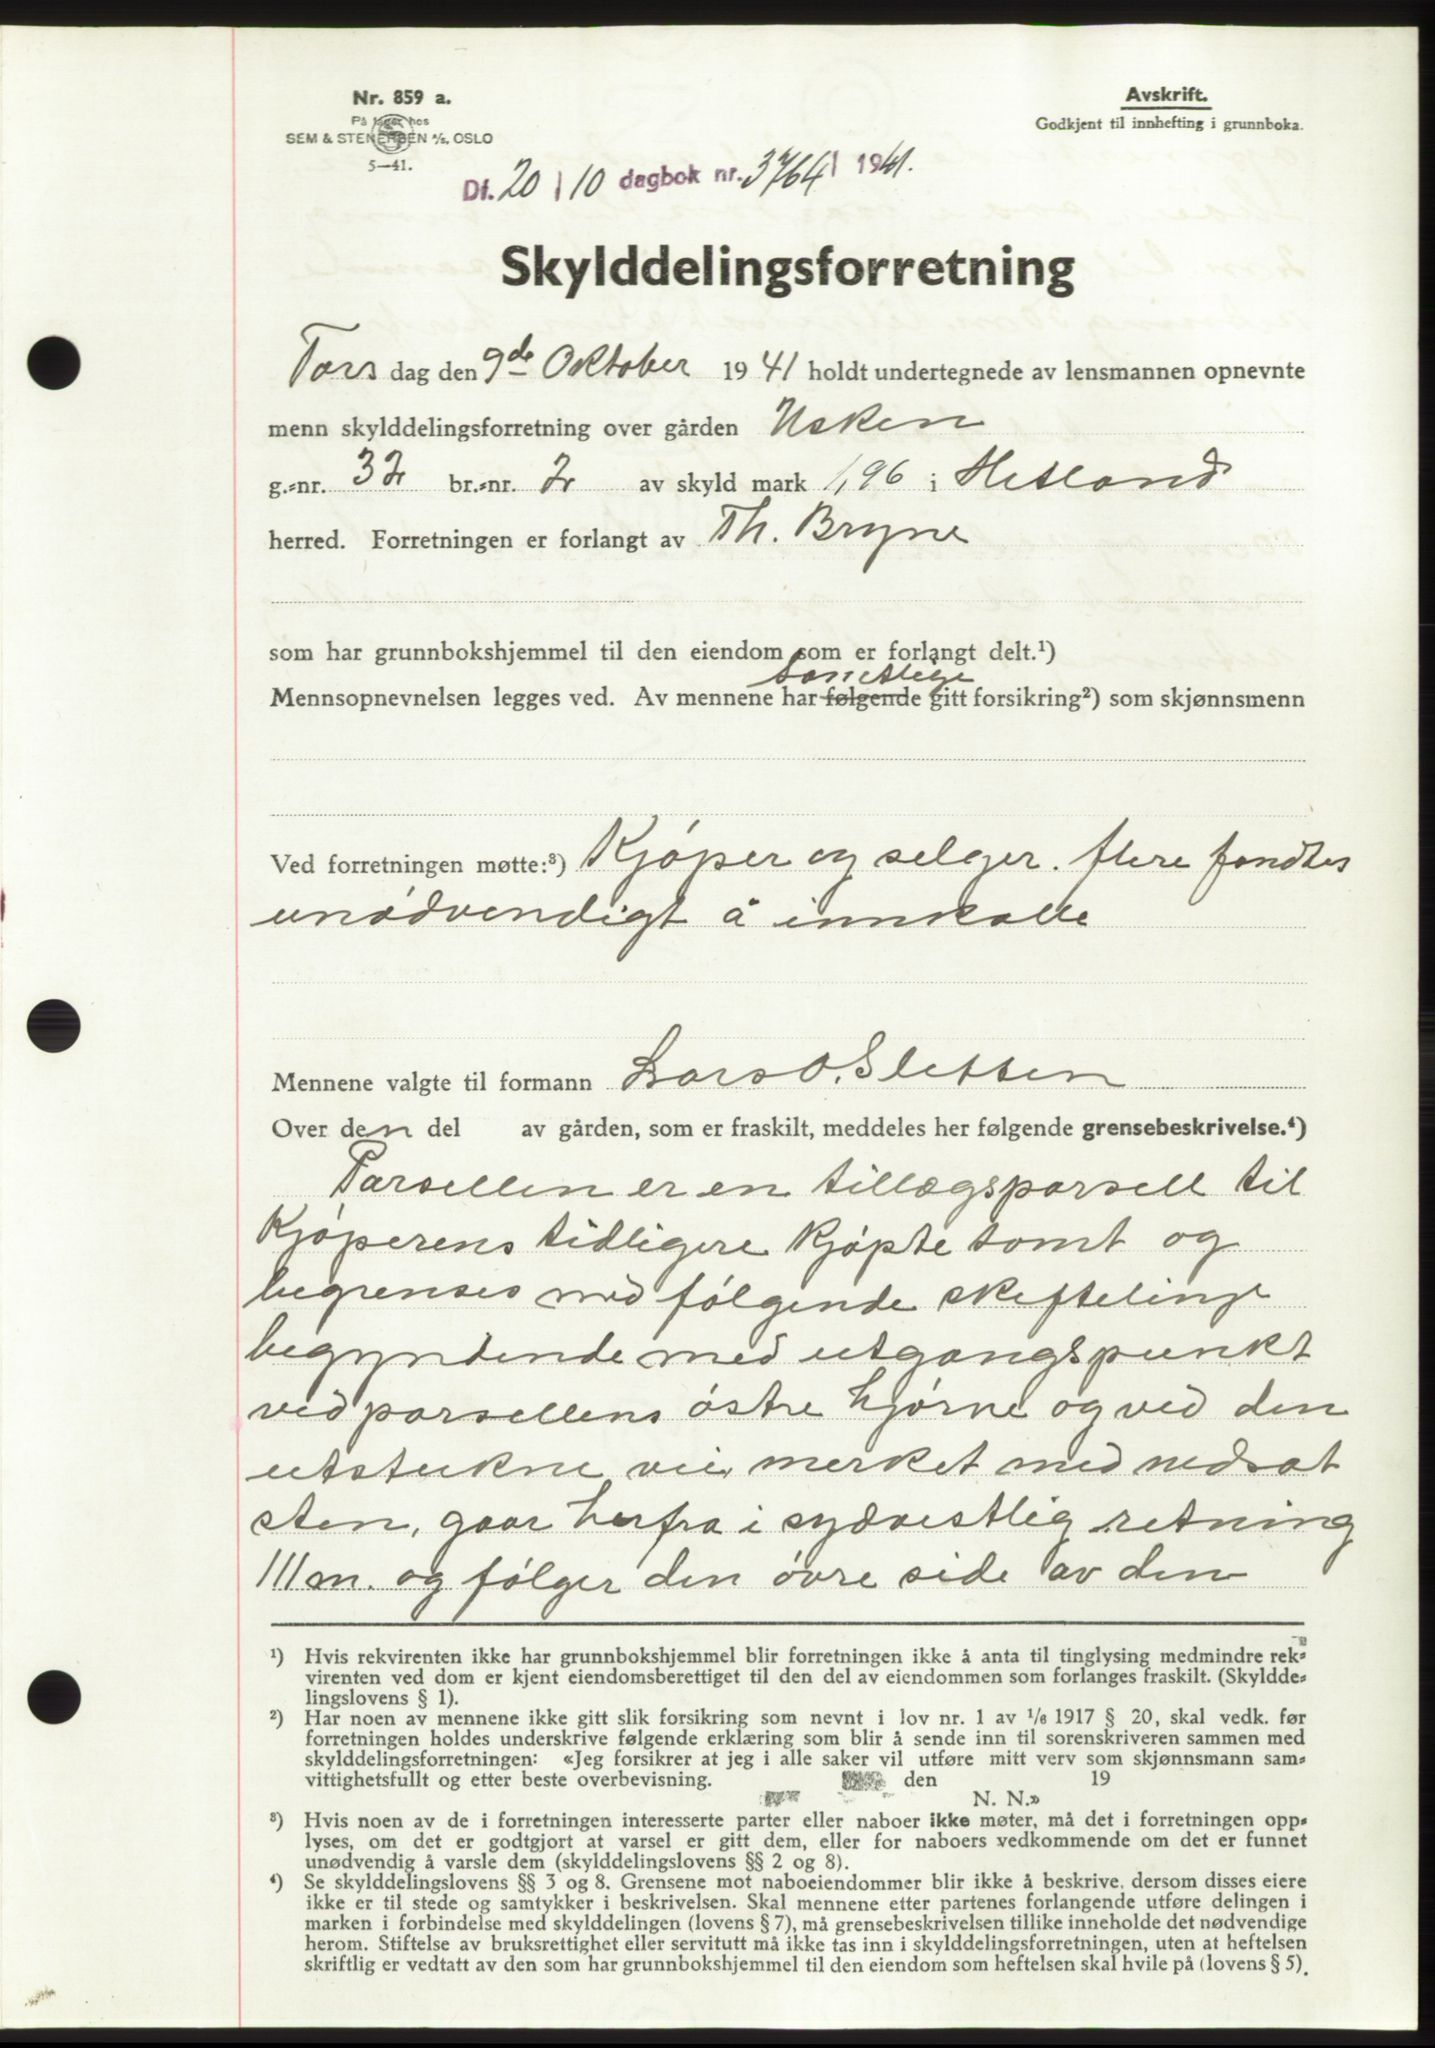 Nr. 859 a.
På lager hos
SEM & STENERSEN A/S, OSLO
5—41.
Avskrift.
Godkjent til innhefting i grunnboka.
Df. 20 / 10 dagbok nr. 3764 / 1941.
Skylddelingsforretning
Torsdag den 9de Oktober 1941 holdt undertegnede av lensmannen opnevnte
menn skylddelingsforretning over gården Usken
g.=nr. 32 br.=nr. 2 av skyld mark 1,96 i Hetland
herred. Forretningen er forlangt av Th. Bryne
som har grunnbokshjemmel til den eiendom som er forlangt delt.¹)
samtlige
Mennsopnevnelsen legges ved. Av mennene har følgende gitt forsikring²) som skjønnsmenn
Ved forretningen møtte:³) Kjøper og selger. flere fandtes
unødvendigt å innkalle
Mennene valgte til formann Lars O. Sletten
Over den del av gården, som er fraskilt, meddeles her følgende grensebeskrivelse.⁴)
Parsellen er en tillægsparsell til
Kjøperens tidligere kjøpte tomt og
begrenses med følgende skiftelinje
begyndende med utgangspunkt
ved parsellens østre hjørne og ved den
utstukne vei, merket med nedsat
sten, gaar herfra i sydvestlig retning
111 m. og følger den øvre side av den
¹) Hvis rekvirenten ikke har grunnbokshjemmel blir forretningen ikke å anta til tinglysing medmindre rek=
virenten ved dom er kjent eiendomsberettiget til den del av eiendommen som forlanges fraskilt. (Skyldde=
lingslovens § 1).
²) Har noen av mennene ikke gitt slik forsikring som nevnt i lov nr. 1 av 1/6 1917 § 20, skal vedk. før
forretningen holdes underskrive følgende erklæring som blir å sende inn til sorenskriveren sammen med
skylddelingsforretningen: «Jeg forsikrer at jeg i alle saker vil utføre mitt verv som skjønnsmann sam=
vittighetsfullt og etter beste overbevisning. den 19
N. N.»
³) Hvis noen av de i forretningen interesserte parter eller naboer ikke møter, må det i forretningen opp=
lyses, om det er godtgjort at varsel er gitt dem, eller for naboers vedkommende om det er funnet
unødvendig å varsle dem (skylddelingslovens §§ 2 og 8).
⁴) Se skylddelingslovens §§ 3 og 8. Grensene mot naboeiendommer blir ikke å beskrive, dersom disses eiere
ikke er til stede og samtykker i beskrivelsen. Skal mennene etter partenes forlangende utføre delingen i
marken i forbindelse med skylddelingen (lovens § 7), må grensebeskrivelsen tillike inneholde det nødvendige
herom. Stiftelse av bruksrettighet eller servitutt må ikke tas inn i skylddelingsforretningen, uten at heftelsen
skriftlig er vedtatt av den som har grunnbokshjemmel til den eiendom som heftelsen skal hvile på (lovens § 5).